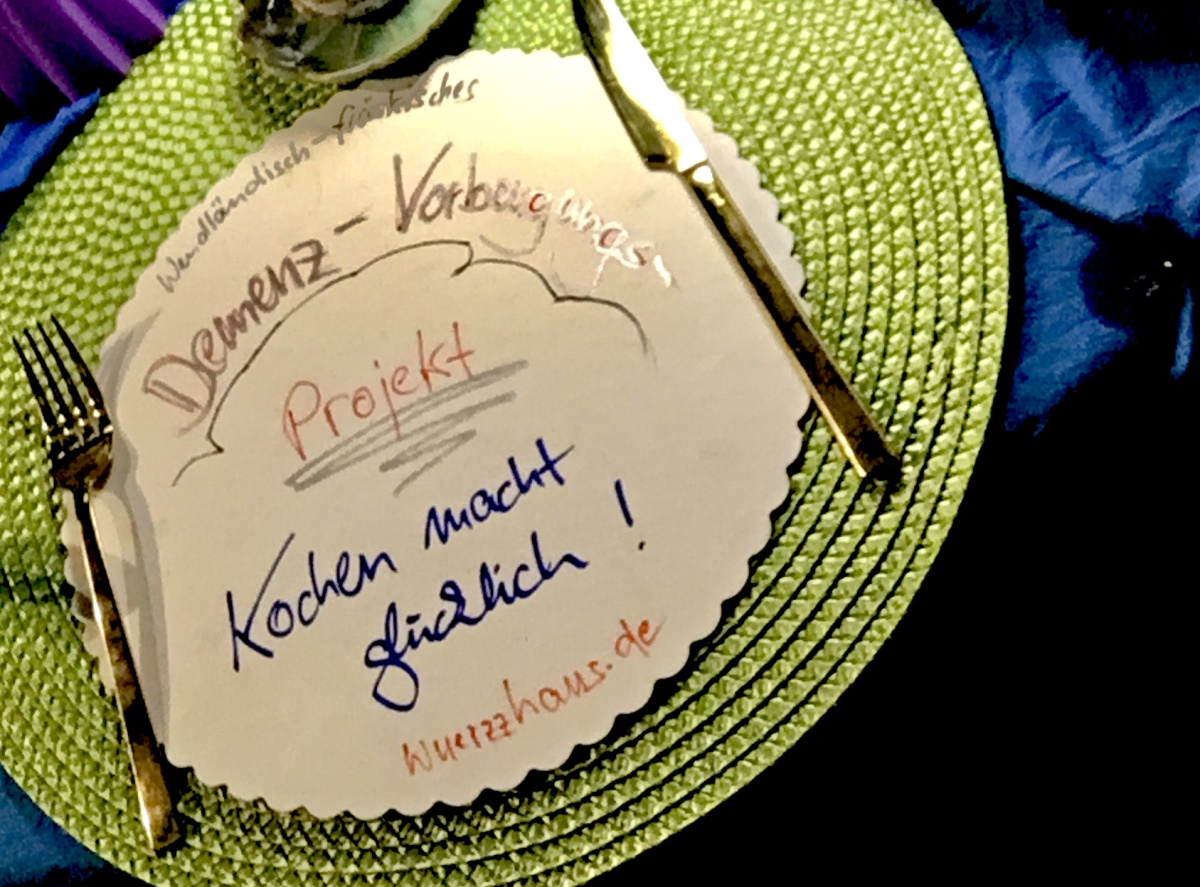 Wendländisch-fränkisches
Demenz-Vorbeugungs-
Projekt
Kochen macht
glücklich !
wuerzzhaus.de